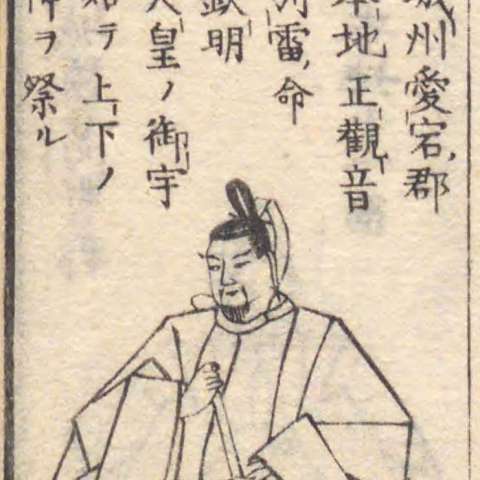 城州愛宕ノ郡
本地正觀音
別雷ノ命
欽明
天皇ノ御宇
始テ上下ノ
神ヲ祭ル